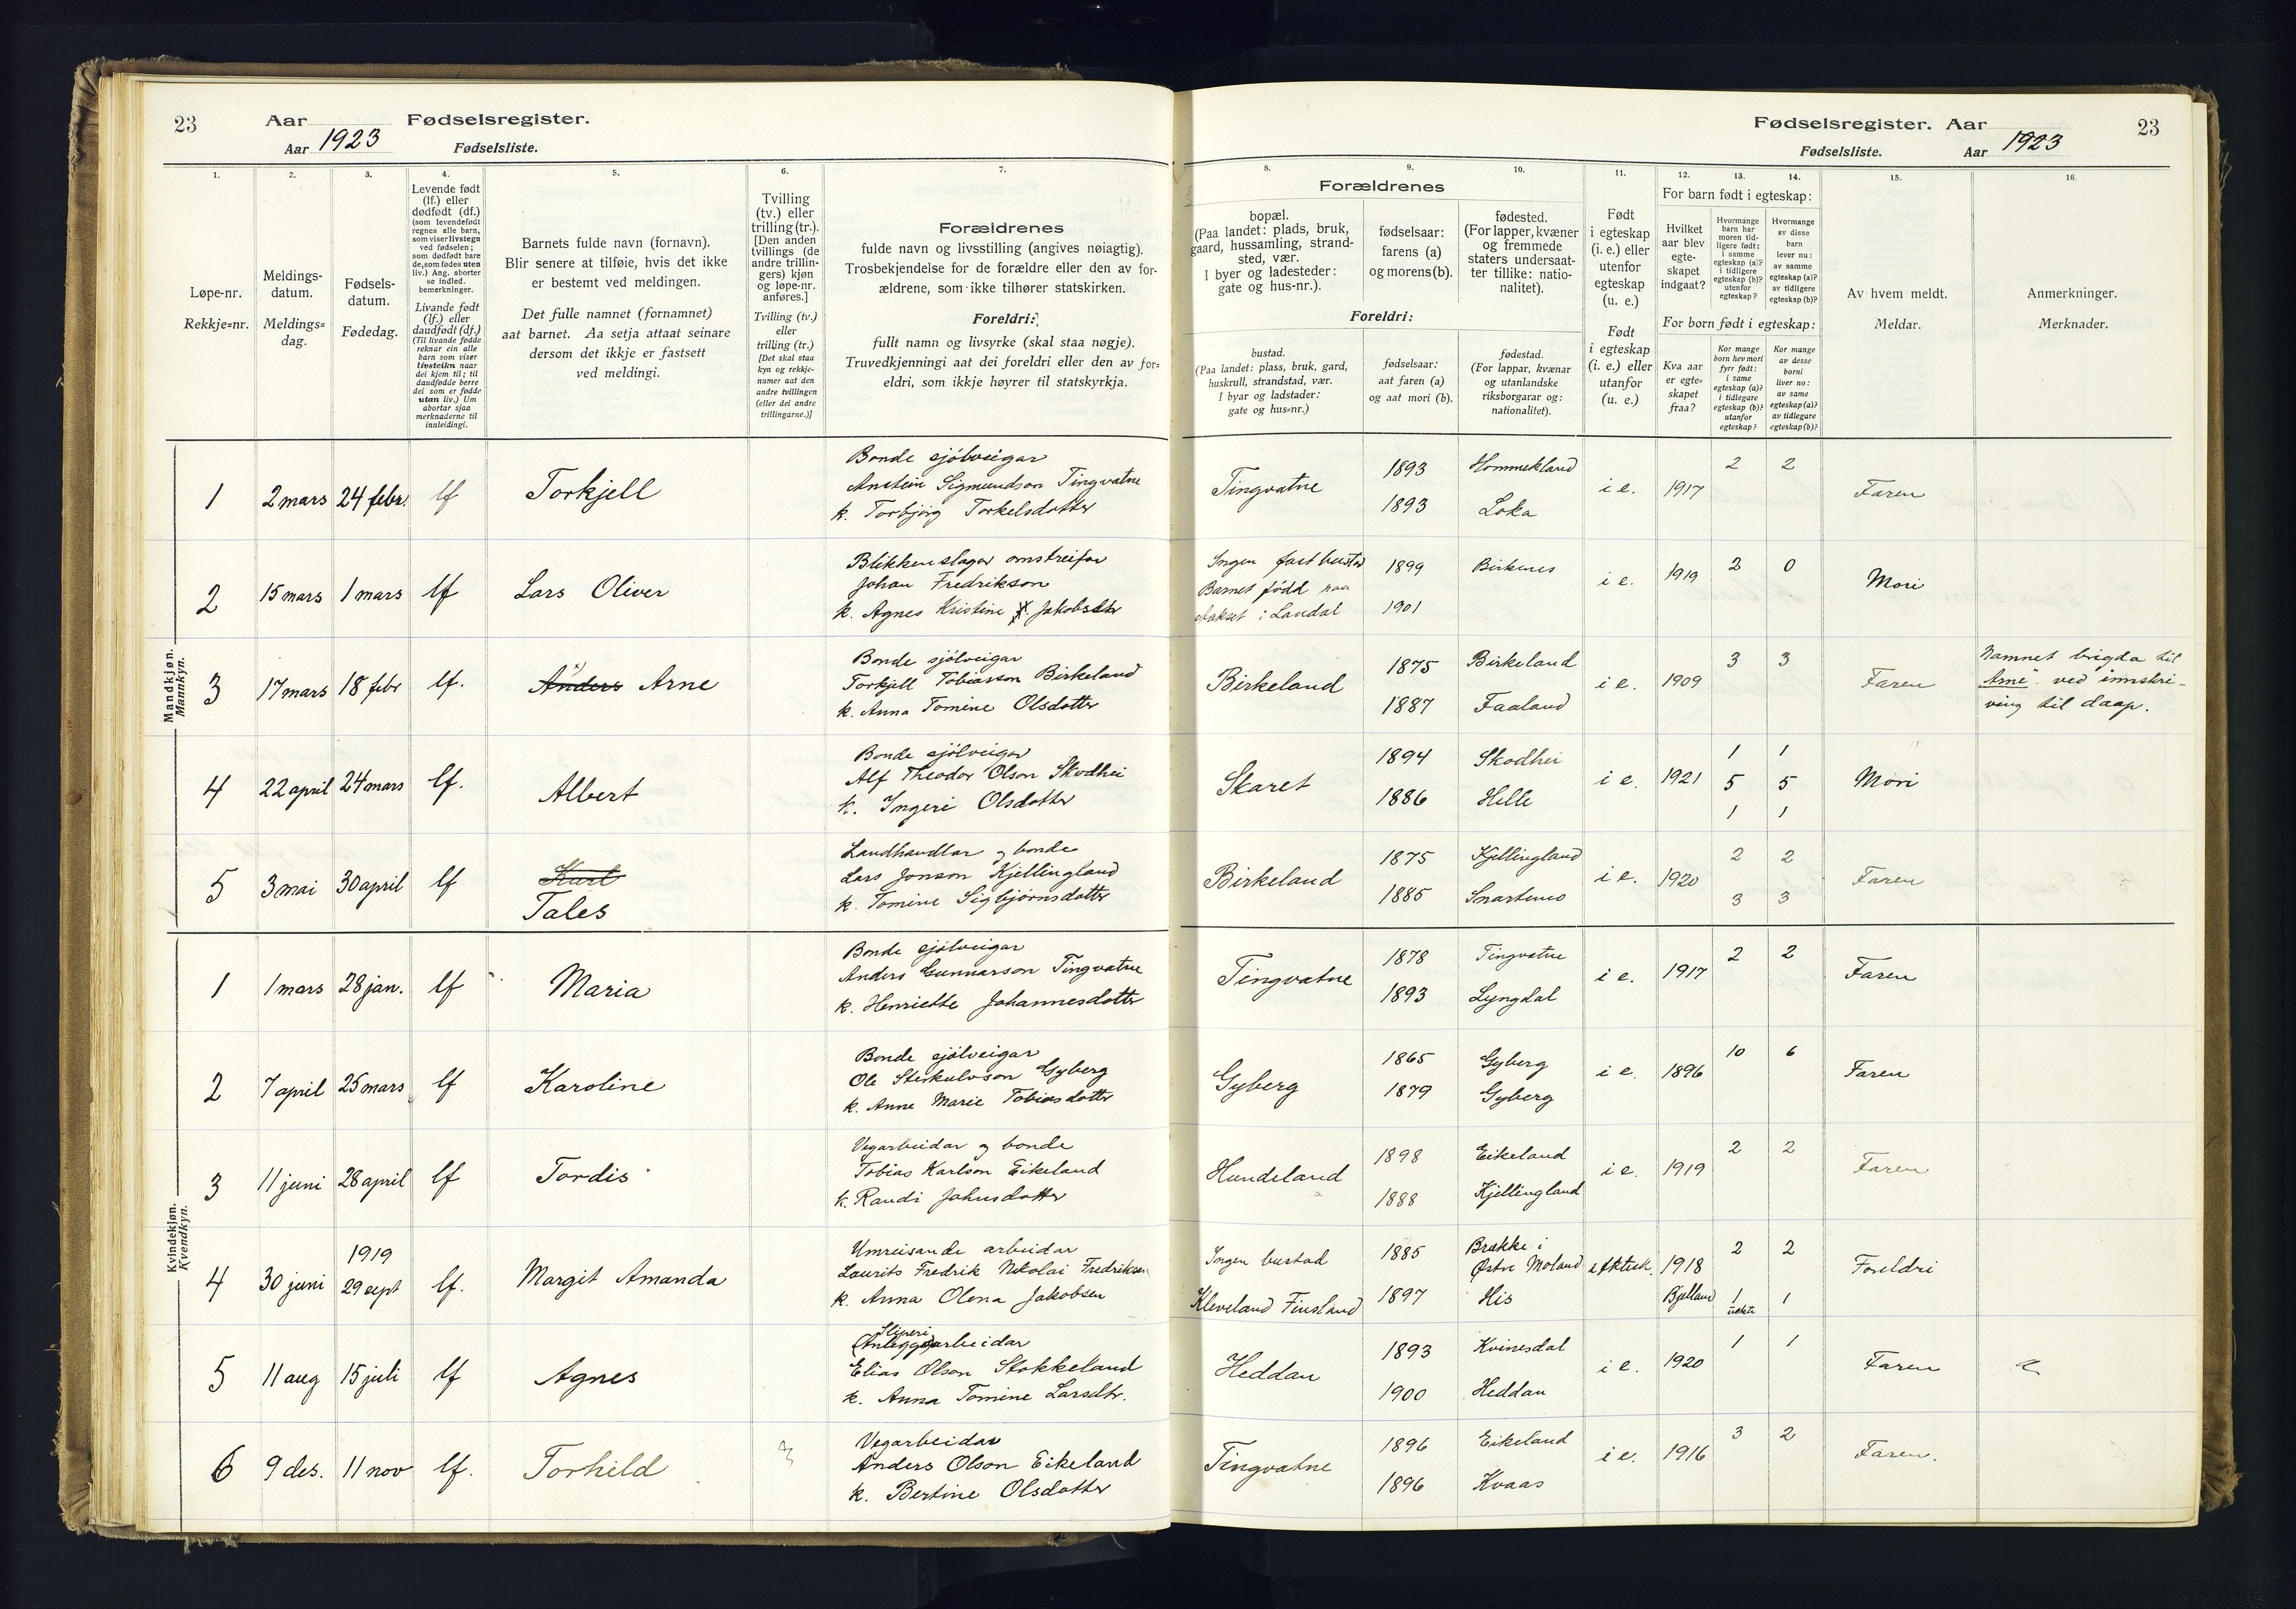 23
Aar
Fødselsregister.
Aar 1923
Fødselsliste.
Fødselsregister. Aar
23
Fødselsliste.
Aar 1923
1.
Løpe-nr.
Rekkje=nr.
2.
Meldings-
datum.
Meldings=
dag.
3.
Fødsels-
datum.
Fødedag.
4.
Levende født
(lf.) eller
dødfødt (df.)
(som levendefødt
regnes alle barn,
som viser livstegn
ved fødselen;
som dødfødt bare
de, som fødes uten
liv.) Ang. aborter
se indled.
bemerkninger.
Livande født
(lf.) eller
daudfødt (df.)
(Til livande fødde
reknar ein alle
barn som viser
livsteikn naar
dei kjem til; til
daudfødde berre
dei som er fødde
utan liv.) Um
abortar sjaa
merknaderne til
innleidingi.
5.
Barnets fulde navn (fornavn).
Blir senere at tilføie, hvis det ikke
er bestemt ved meldingen.
Det fulle namnet (fornamnet)
aat barnet. Aa setja attaat seinare
dersom det ikkje er fastsett
ved meldingi.
6.
Tvilling
(tv.) eller
trilling (tr.).
[Den anden
tvillings (de
andre trillin-
gers) kjøn
og løpe-nr.
anføres.]
Tvilling (tv.)
eller
trilling (tr.)
[Det skal staa
kyn og rekkje-
numer aat den
andre tvillingen
(eller dei andre
trillingarne.)]
7.
Forældrenes
fulde navn og livsstilling (angives nøiagtig).
Trosbekjendelse for de forældre eller den av for-
ældrene, som ikke tilhører statskirken.
Foreldri:
fullt namn og livsyrke (skal staa nøgje).
Truvedkjenningi aat dei foreldri eller den av for=
eldri, som ikkje høyrer til statskyrkja.
Forældrenes
8.
bopæl.
(Paa landet: plads, bruk,
gaard, hussamling, strand-
sted, vær.
I byer og ladesteder:
gate og hus-nr.).
9.
fødselsaar:
farens (a)
og morens (b).
10.
fødested.
(For lapper, kvæner
og fremmede
staters undersaat-
ter tillike: natio-
nalitet).
Foreldri:
bustad.
(Paa landet: plass, bruk, gard,
huskrull, strandstad, vær.
I byar og ladstader:
gate og hus=nr.)
fødselsaar:
aat faren (a)
og aat mori (b).
fødestad.
(For lappar, kvænar
og utanlandske
riksborgarar og:
nationalitet).
11.
Født
i egteskap
(i. e.) eller
utenfor
egteskap
(u. e.)
Født
i egteskap
(i. e.) eller
utanfor
egteskap
(u. e.)
12.
13.
14.
For barn født i egteskap:
Hvilket
aar blev
egte-
skapet
indgaat?
Hvormange
barn har
moren tid-
ligere født:
i samme
egteskap (a)?
i tidligere
egteskap (b)?
utenfor
egteskap?
Hvormange
av disse
barn
lever nu:
av samme
egteskap (a)?
av tidligere
egteskap (b)?
For born født i egteskap:
Kva aar
er egte=
skapet
fraa?
Kor mange
born hev mori
fyrr født:
i same
egteskap (a)?
i tidlegare
egteskap (b)?
utanfor
egteskap?
Kor mange
av desse
borni
liver no:
av same
egteskap (a)?
av tidlegare
egteskap (b)?
15.
Av hvem meldt.
Meldar.
16.
Anmerkninger.
Merknader.
Mandkjøn.
Mannkyn.
1 2 mars 24 febr. lf Torkjell
Bonde sjølveigar
Anstein Sigmundson Tingvatne
k. Torbjørg Torkelsdotter
Tingvatne 1893 Hommekland i e. 1917 2 2 Faren
1893 Loka
2 15 mars 1 mars lf Lars Oliver
Blikkenslagar omstreifar
Johan Fredrikson
k. Agnes Kristine Jakobsdtr
Ingen fast bustad 1899 Birkenes i e. 1919 2 0 Mori
Barnet fødd paa
i Laudal 1901
3 17 mars 18 febr lf. Anders Arne
Bonde sjølveigar
Torkjell Tobiasson Birkeland
k. Anna Tomine Olsdotter
Birkeland 1875 Birkeland i e. 1909 3 3 Faren
1887 Faaland
Namnet brigda til
"Arne" ved innskri-
ving til daap.
4 22 april 24 mars lf. Albert
Bonde sjølveigar
Alf Theodor Olson Skodhei
k. Ingeri Olsdotter
Skaret 1894 Skodhei i e. 1921 1 1 Mori
1886 Helle 5 5
1 1
5 3 mai 30 april lf Karl
Tales
Landhandlar og bonde
Lars Jonson Kjellingland
k. Tomine Sigbjørnsdotter
Birkeland 1875 Kjellingland i e. 1920 2 2 Faren
1885 Snartemo 3 3
Kvindekjøn.
Kvendkyn.
1 1 mars 28 jan. lf Maria
Bonde sjølveigar
Anders Gunnarson Tingvatne
k. Henriette Johannesdotter
Tingvatne 1878 Tingvatne i e. 1917 2 2 Faren
1893 Lyngdal
2 7 april 25 mars lf Karoline
Bonde sjølveigar
Ole Steikulvson Gyberg
k. Anne Marie Tobiasdotter
Gyberg 1865 Gyberg i e. 1896 10 6 Faren
1879 Gyberg
3 11 juni 28 april lf Tordis
Vegarbeidar og bonde
Tobias Karlson Eikeland
k. Randi Jahnsdotter
Hundeland 1898 Eikeland i e. 1919 2 2 Faren
1888 Kjellingland
4 30 juni 1919
29 sept lf. Margit Amanda
Umreisande arbeidar
Laurits Fredrik Nikolai Fredriksen
k. Anna Olena Jakobsen
Ingen bustad 1885 Brække i
Østre Moland 1918 2 2 Foreldri
Kleveland Finsland 1897 His Bjelland 1 1
uekte
5 11 aug 15 juli lf Agnes
Sliperi
(Anleggs)arbeidar
Elias Olson Stokkeland
k. Anna Tomine Larsdtr.
Heddan 1893 Kvinesdal i e. 1920 1 1 Faren
1900 Heddan
6 9 des. 11 nov lf. Torhild
Vegarbeidar
Anders Olson Eikeland
k. Bertine Olsdotter
Tingvatne 1896 Eikeland i e. 1916 3 2 Faren.
1896 Kvaas